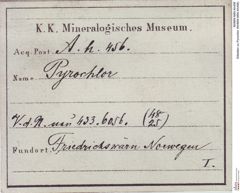 K. K. Mineralogisches Museum.
Acq. Post. A. h. 456.
Name Pyrochlor
V. d. N. 433. 6056. (48/25)
Fundort Friedrichsvärn Norwegen
I.